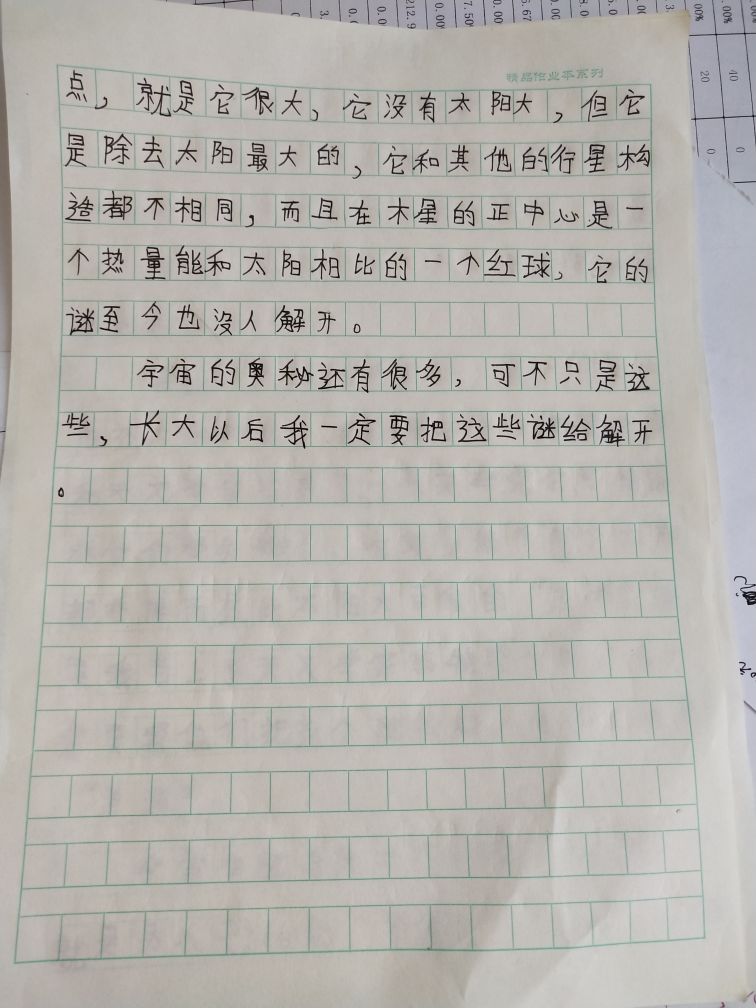 精品作业本系列
点，就是它很大，它没有太阳大，但它
是除去太阳最大的，它和其他的行星构
造都不相同，而且在木星的正中心是一
个热量能和太阳相比的一个红球，它的
谜至今也没人解开。
宇宙的奥秘还有很多，可不只是这
些，长大以后我一定要把这些谜给解开
。